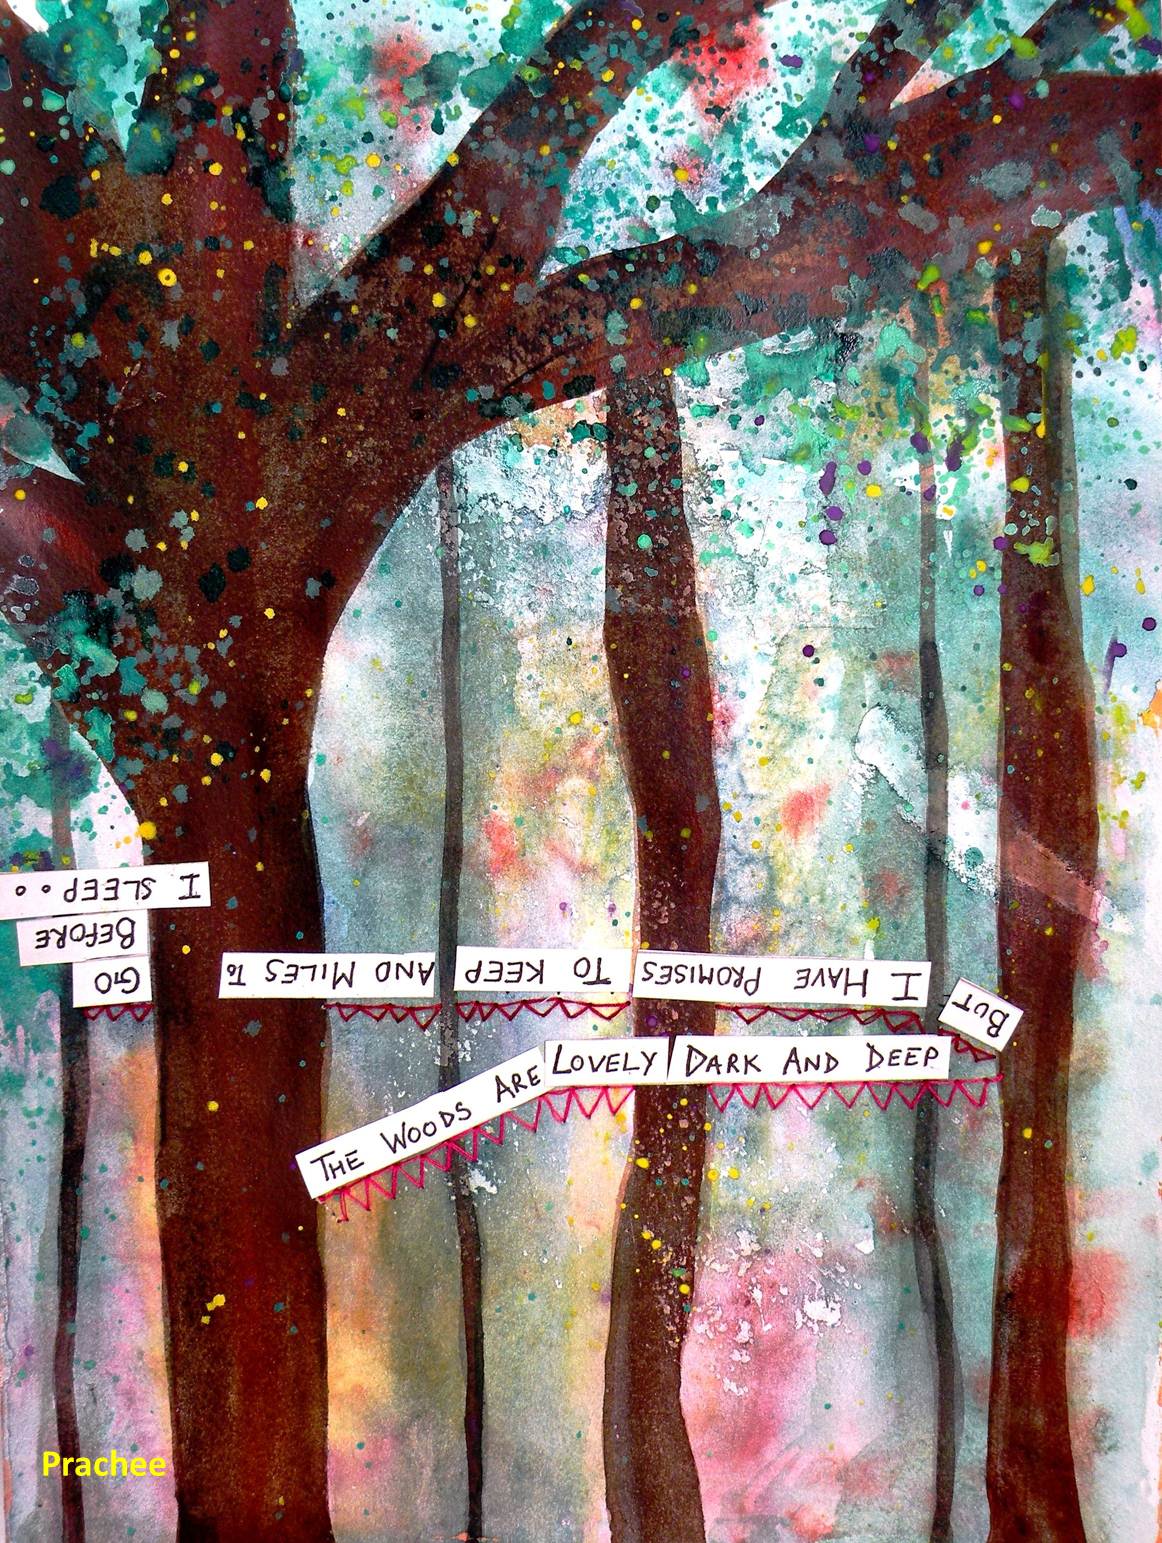 THE WOODS ARE LOVELY DARK AND DEEP
BUT
I HAVE PROMISES TO KEEP AND MILES TO
GO
BEFORE
I SLEEP...
Prachee